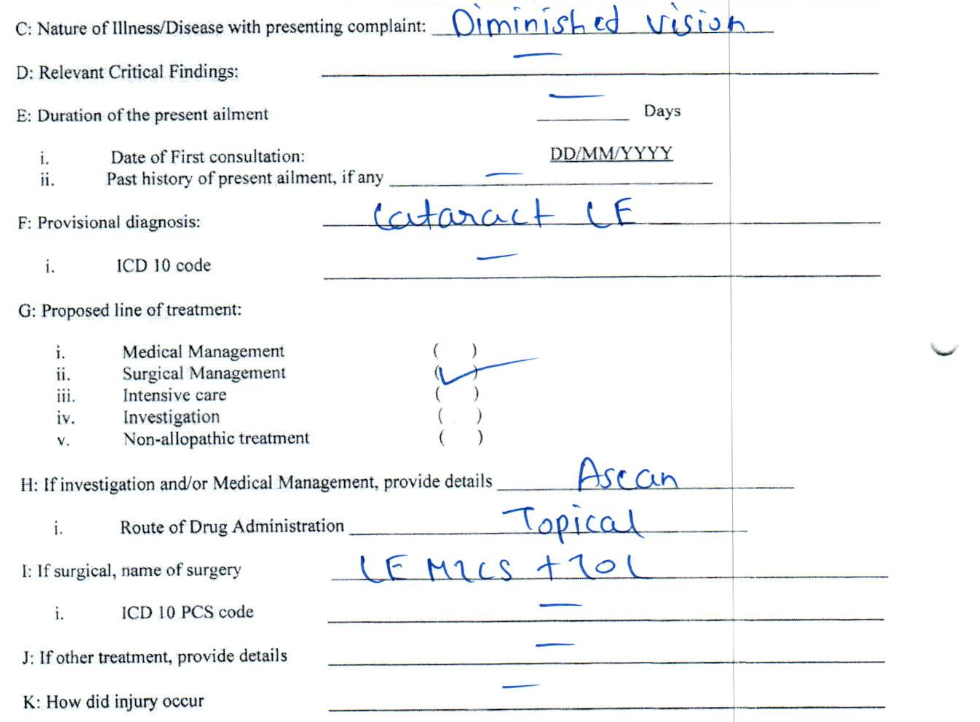 C: Nature of Illness/Disease with presenting complaint: Diminished vision
D: Relevant Critical Findings: —
E: Duration of the present ailment — Days
i. Date of First consultation: DD/MM/YYYY
ii. Past history of present ailment, if any —
F: Provisional diagnosis: Cataract LE
i. ICD 10 code —
G: Proposed line of treatment:
i. Medical Management ( )
ii. Surgical Management (✓)
iii. Intensive care ( )
iv. Investigation ( )
v. Non-allopathic treatment ( )
H: If investigation and/or Medical Management, provide details Ascan
i. Route of Drug Administration Topical
I: If surgical, name of surgery LE MICS + IOL
i. ICD 10 PCS code —
J: If other treatment, provide details —
K: How did injury occur —